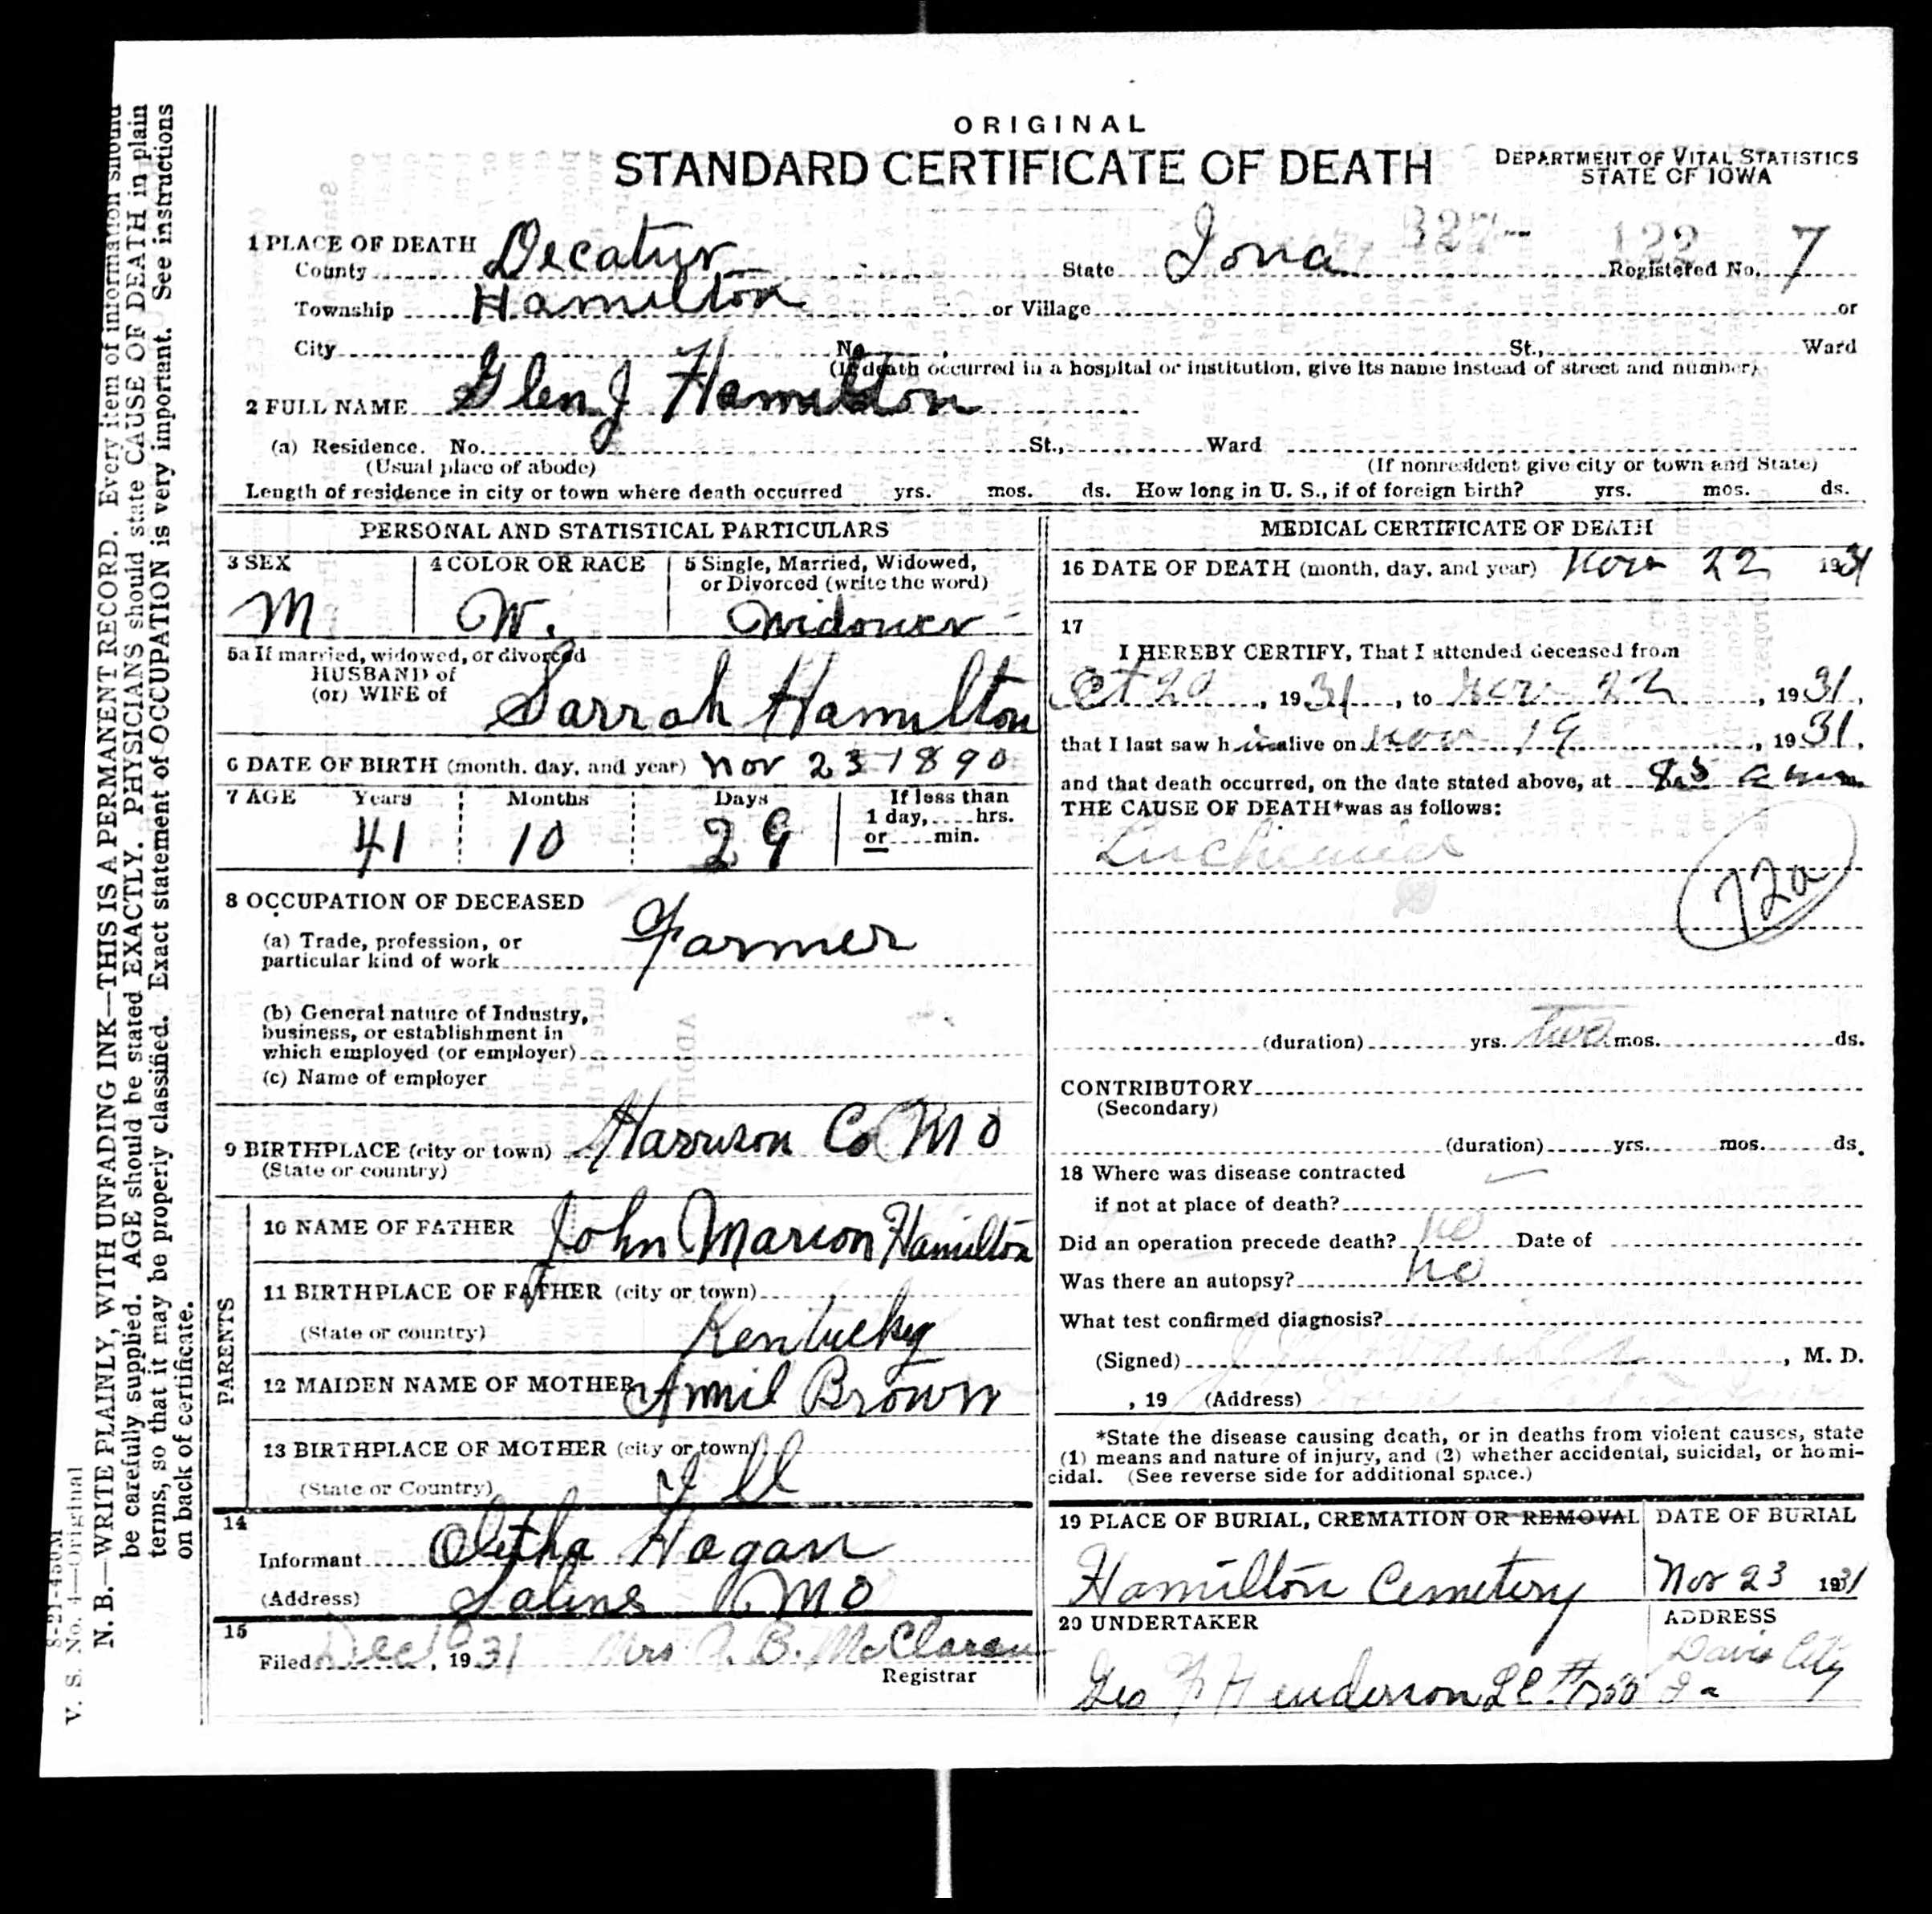 ORIGINAL
STANDARD CERTIFICATE OF DEATH
DEPARTMENT OF VITAL STATISTICS
STATE OF IOWA
1 PLACE OF DEATH
County Decatur State Iowa Registered No. 7
327- 122
Township Hamilton or Village or
City No. St., Ward
(If death occurred in a hospital or institution, give its name instead of street and number)
2 FULL NAME Glen J Hamilton
(a) Residence. No. St., Ward
(Usual place of abode) (If nonresident give city or town and State)
Length of residence in city or town where death occurred yrs. mos. ds. How long in U. S., if of foreign birth? yrs. mos. ds.
PERSONAL AND STATISTICAL PARTICULARS
3 SEX 4 COLOR OR RACE 5 Single, Married, Widowed, or Divorced (write the word)
M W. Widower
5a If married, widowed, or divorced
HUSBAND of
(or) WIFE of Sarrah Hamilton
6 DATE OF BIRTH (month, day, and year) Nov 23-1890
7 AGE Years Months Days If less than
1 day, hrs.
or min.
41 10 29
8 OCCUPATION OF DECEASED
(a) Trade, profession, or
particular kind of work Farmer
(b) General nature of Industry,
business, or establishment in
which employed (or employer)
(c) Name of employer
9 BIRTHPLACE (city or town) Harrison Co Mo
(State or country)
PARENTS
10 NAME OF FATHER John Marion Hamilton
11 BIRTHPLACE OF FATHER (city or town)
(State or country) Kentucky
12 MAIDEN NAME OF MOTHER Brown
13 BIRTHPLACE OF MOTHER (city or town)
(State or Country) Ill
14
Informant Oletha Hagan
(Address) Saline Mo
15
Filed Dec 1931 Mrs B. McClaran
Registrar
MEDICAL CERTIFICATE OF DEATH
16 DATE OF DEATH (month, day, and year) Nov 22 1931
17
I HEREBY CERTIFY, That I attended deceased from
Oct 20, 1931, to Nov 22, 1931,
that I last saw him alive on Nov 19, 1931,
and that death occurred, on the date stated above, at m.
THE CAUSE OF DEATH* was as follows:
72a
(duration) yrs. two mos. ds.
CONTRIBUTORY
(Secondary)
(duration) yrs. mos. ds.
18 Where was disease contracted
if not at place of death?
Did an operation precede death? no Date of
Was there an autopsy? no
What test confirmed diagnosis?
(Signed) , M. D.
, 19 (Address)
*State the disease causing death, or in deaths from violent causes, state
(1) means and nature of injury, and (2) whether accidental, suicidal, or homi-
cidal. (See reverse side for additional space.)
19 PLACE OF BURIAL, CREMATION OR REMOVAL DATE OF BURIAL
Hamilton Cemetery Nov 23 1931
20 UNDERTAKER ADDRESS
Geo F Henderson Davis City Ia
N. B.—WRITE PLAINLY, WITH UNFADING INK—THIS IS A PERMANENT RECORD. Every item of information should
be carefully supplied. AGE should be stated EXACTLY. PHYSICIANS should state CAUSE OF DEATH in plain
terms, so that it may be properly classified. Exact statement of OCCUPATION is very important. See instructions
on back of certificate.
V. S. No. 4—Original
8-21-450M